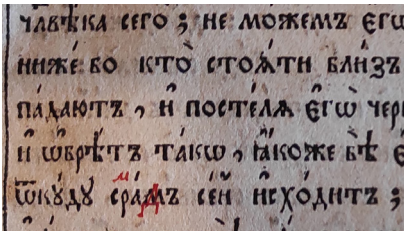 члв҃ѣка сего ; не можемъ єгѡ
ниже́ бо кто̀ стоѧ́ти бли́зъ
па́даютъ , и҆ посте́лѧ є҆гѡ̀
и҆ ѡ҆брѣ́тъ та́кѡ , ꙗ҆́коже бѣ̀
ѿкꙋ́дꙋ сра́мъ се́й исхо́дитъ ;